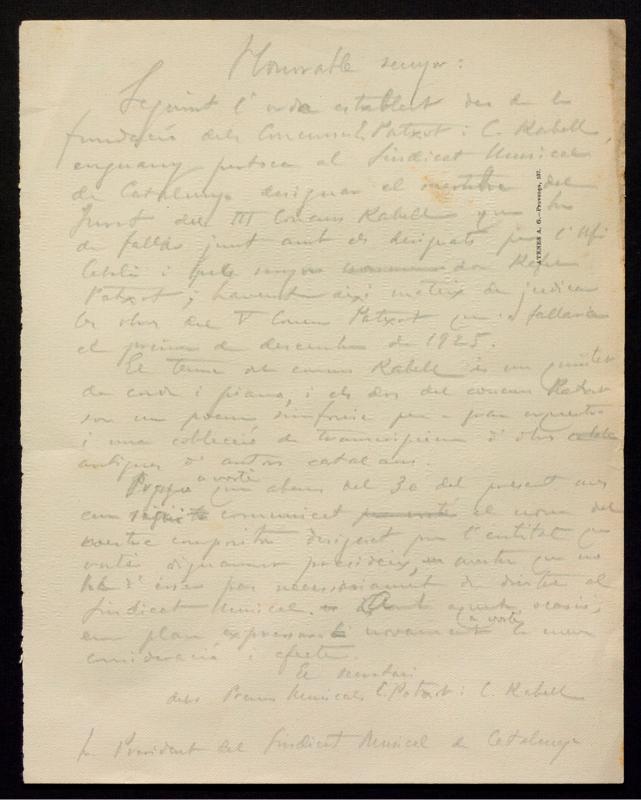 Honorable senyor:
Seguint l'ordre establert des de la
fundació dels Concursos Patxot i C. Rabell,
enguany pertoca al Sindicat Musical
de Catalunya designar el mestre del
Jurat del III Concurs Rabell que ha
de fallar junt amb els designats per l'Orfeó
Català i pels senyors don Rafael
Patxot; havent així mateix de judicar
les obres del V Concurs Patxot que es fallarà
el primer de desembre de 1925.
El tema del concurs Rabell és un quintet
de corda i piano, i els dos del concurs Patxot
son un poema simfònic per a gran orquestra
i una col·lecció de transcripcions d'obres
antigues d'autors catalans.
Prego a vostè que abans del 30 del present mes
ens comunicat el nom del
mestre compositor designat per l'entitat que
vostè dignament presideix, mestre que no
ha d'ésser pas necessariament del Sindicat
Sindicat Musical. Amb aquesta ocasió,
em plau expressar novament a vostè la meva
consideració i afecte.
El secretari
dels Premis Musicals C. Patxot i C. Rabell
Sr. President del Sindicat Musical de Catalunya
ATENES A. G.—Provença, 157.